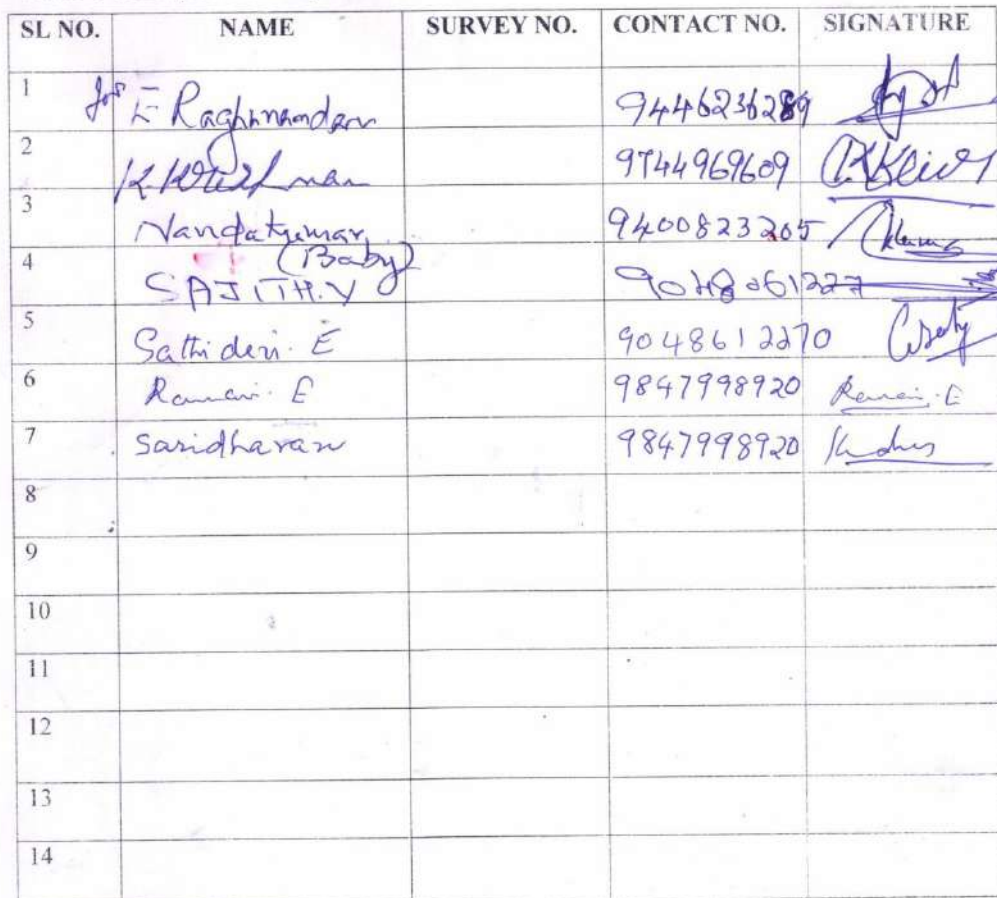 SL NO. NAME SURVEY NO. CONTACT NO. SIGNATURE
1 for E Raghunandan 9446236289
2 K. Krishnan 9744969609
3 Nandakumar 9400823205
(Baby)
4 SAJITH.V 9048061227
5 Sathi devi. E 9048612270
6 Ramani. E 9847998920 Ramani. E
7 Sasidharan 9847998920
8
9
10
11
12
13
14